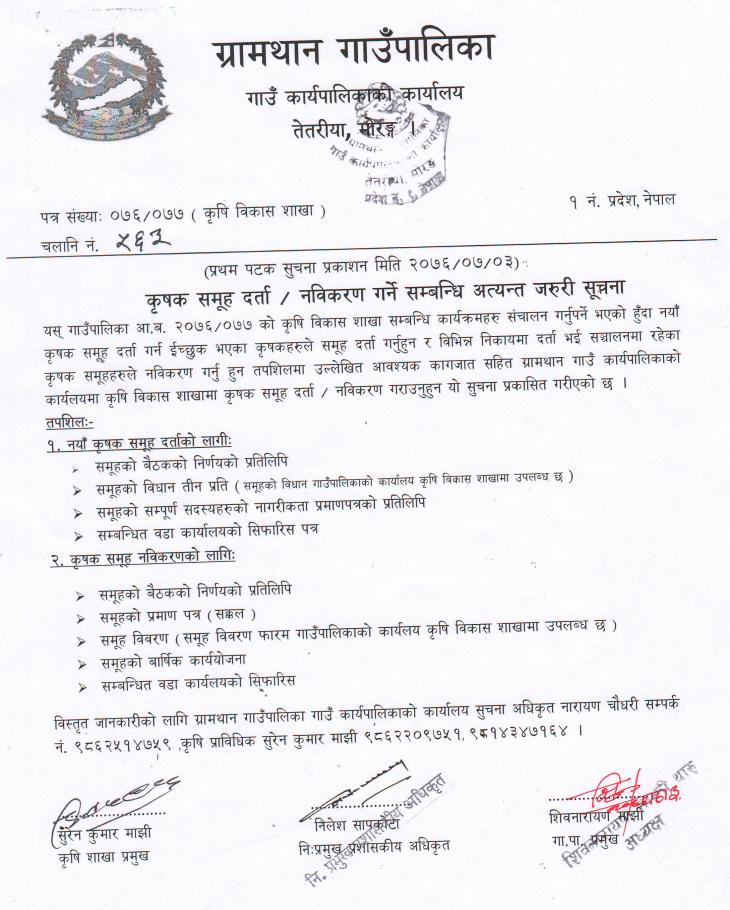 ग्रामथान गाउँपालिका
गाउँ कार्यपालिकाको कार्यालय
तेतरीया, मोरङ्ग ।
१ नं. प्रदेश, नेपाल
पत्र संख्याः ०७६/०७७ ( कृषि विकास शाखा )
चलानि नं. २६३
(प्रथम पटक सुचना प्रकाशन मिति २०७६/०७/०३)
कृषक समूह दर्ता / नविकरण गर्ने सम्बन्धि अत्यन्त जरुरी सूचना
यस् गाउँपालिका आ.ब. २०७६/०७७ को कृषि विकास शाखा सम्बन्धि कार्यक्रमहरु संचालन गर्नुपर्ने भएको हुँदा नयाँ
कृषक समूह दर्ता गर्न ईच्छुक भएका कृषकहरुले समूह दर्ता गर्नुहुन र विभिन्न निकायमा दर्ता भई सञ्चालनमा रहेका
कृषक समूहहरुले नविकरण गर्नु हुन तपशिलमा उल्लेखित आवश्यक कागजात सहित ग्रामथान गाउँ कार्यपालिकाको
कार्यलयमा कृषि विकास शाखामा कृषक समूह दर्ता / नविकरण गराउनुहुन यो सुचना प्रकासित गरीएको छ ।
तपशिलः-
१. नयाँ कृषक समूह दर्ताको लागीः
➤ समूहको बैठकको निर्णयको प्रतिलिपि
➤ समूहको विधान तीन प्रति ( समूहको विधान गाउँपालिकाको कार्यालय कृषि विकास शाखामा उपलब्ध छ )
➤ समूहको सम्पूर्ण सदस्यहरुको नागरीकता प्रमाणपत्रको प्रतिलिपि
➤ सम्बन्धित वडा कार्यालयको सिफारिस पत्र
२. कृषक समूह नविकरणको लागिः
➤ समूहको बैठकको निर्णयको प्रतिलिपि
➤ समूहको प्रमाण पत्र (सक्कल )
➤ समूह विवरण ( समूह विवरण फारम गाउँपालिकाको कार्यलय कृषि विकास शाखामा उपलब्ध छ )
➤ समूहको बार्षिक कार्ययोजना
➤ सम्बन्धित वडा कार्यलयको सिफारिस
विस्तृत जानकारीको लागि ग्रामथान गाउँपालिका गाउँ कार्यपालिकाको कार्यालय सुचना अधिकृत नारायण चौधरी सम्पर्क
नं. ९८६२५१४७५९ ,कृषि प्राविधिक सुरेन कुमार माझी ९८६२२०९७५१, ९८१४३४७१६४ ।
सुरेन कुमार माझी
कृषि शाखा प्रमुख
निलेश सापकोटा
निःप्रमुख प्रशासकीय अधिकृत
नि. प्रमुख प्रशासकीय अधिकृत
शिवनारायण माझी
गा.पा. प्रमुख
अध्यक्ष